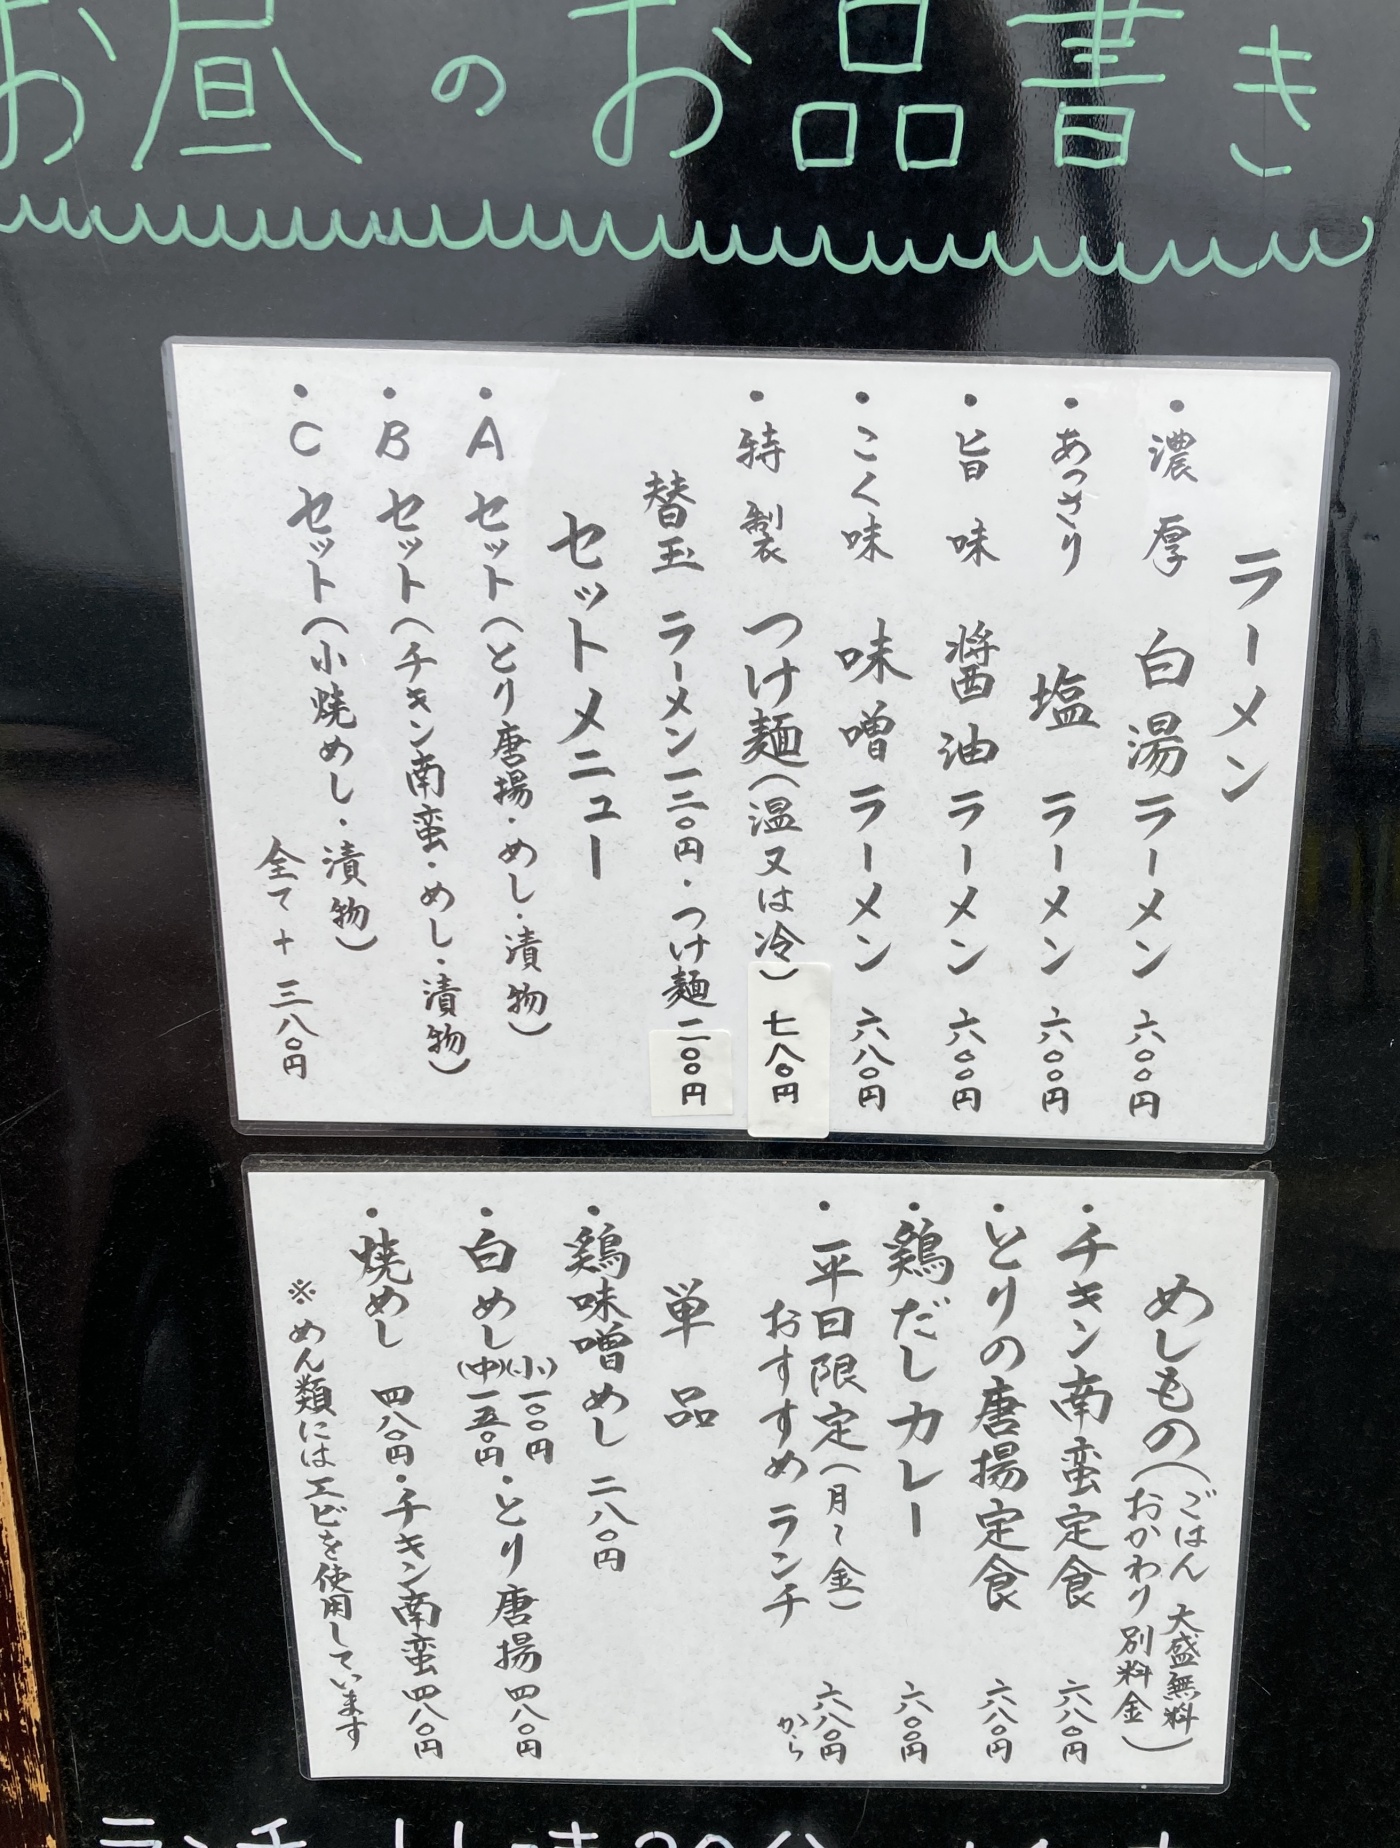 お昼のお品書き
ラーメン
・濃厚 白湯ラーメン 六〇〇円
・あっさり 塩ラーメン 六〇〇円
・旨味 醤油ラーメン 六〇〇円
・こく味 味噌ラーメン 六八〇円
・特製 つけ麺(温又は冷) 七八〇円
替玉 ラーメン一三〇円・つけ麺二〇〇円
セットメニュー
・Aセット(とり唐揚・めし・漬物)
・Bセット(チキン南蛮・めし・漬物)
・Cセット(小焼めし・漬物)
全て+三八〇円
めしもの(ごはん 大盛無料
おかわり別料金)
・チキン南蛮定食 六八〇円
・とりの唐揚定食 六八〇円
・鶏だしカレー 六〇〇円
・平日限定(月〜金) 六八〇円
おすすめランチ から
単品
・鶏味噌めし 二八〇円
・白めし(小)一〇〇円・とり唐揚 四八〇円
(中)一五〇円
・焼めし 四八〇円・チキン南蛮 四八〇円
※めん類にはエビを使用しています